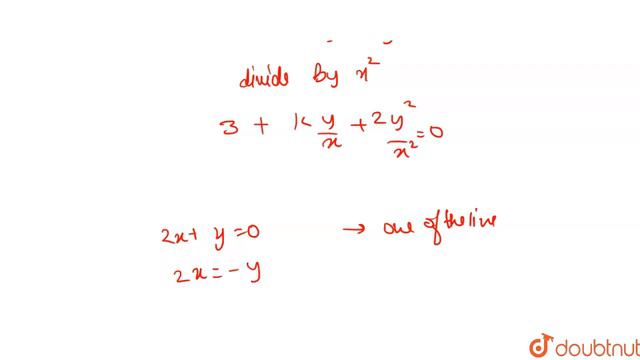 divide by x²
3 + k y/x + 2y²/x² = 0
2x + y = 0 → one of the line
2x = - y
doubtnut